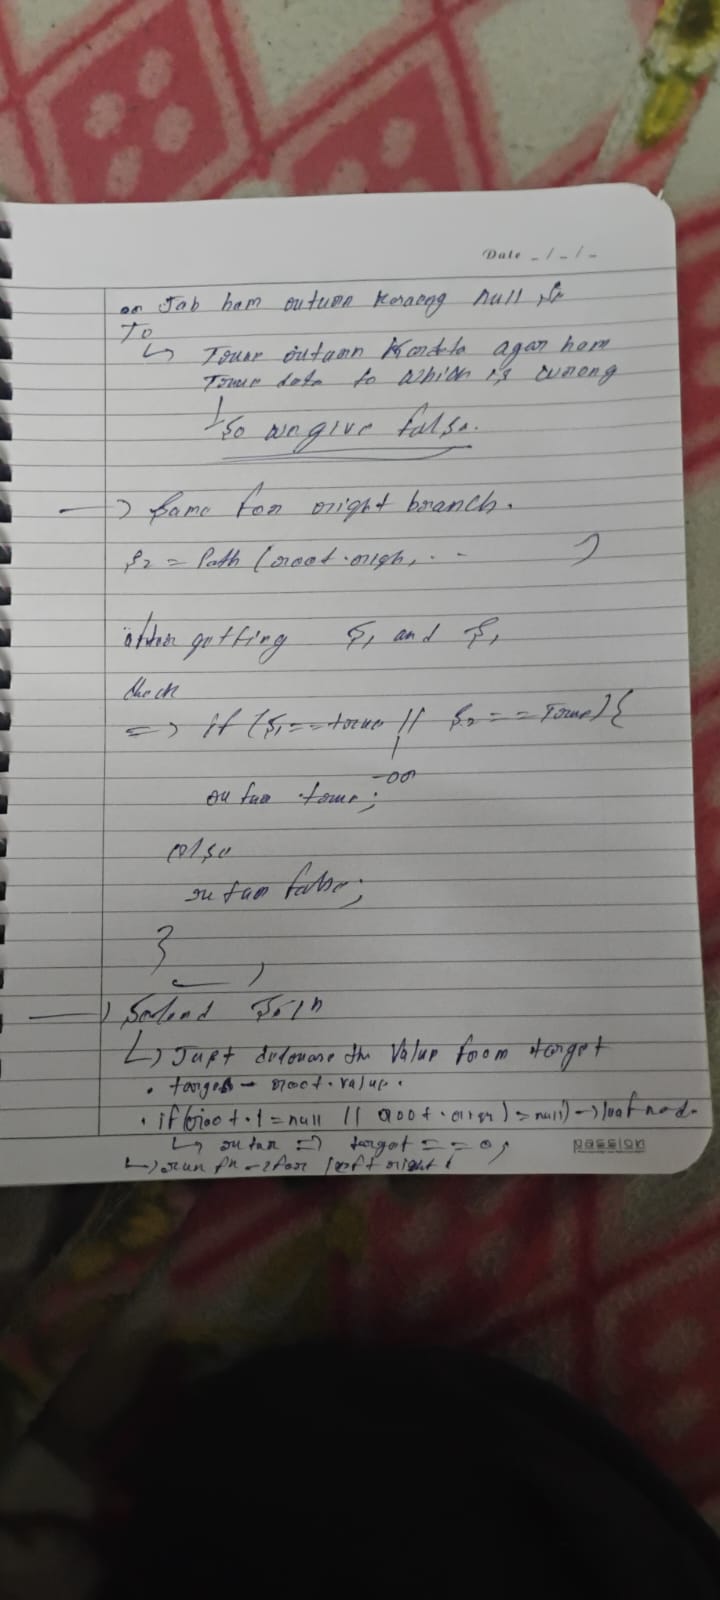 Date _/_/_
on Jab ham return karaeng null
To
↳ True return kardeta agar ham
True data to which is wrong
so we give false.
→ Same for right branch.
S2 = Path (root.righ, . . )
after getting S1 and S1
check
=> if (S1 == true || S2 == True) {
or
return true;
else
return false;
}
→ Second
↳ Just the Value from target
• target - root.value.
• if (root.l = null || root.) = null) → leaf node
↳ return => target == 0;
↳ run fn - for left right
passion